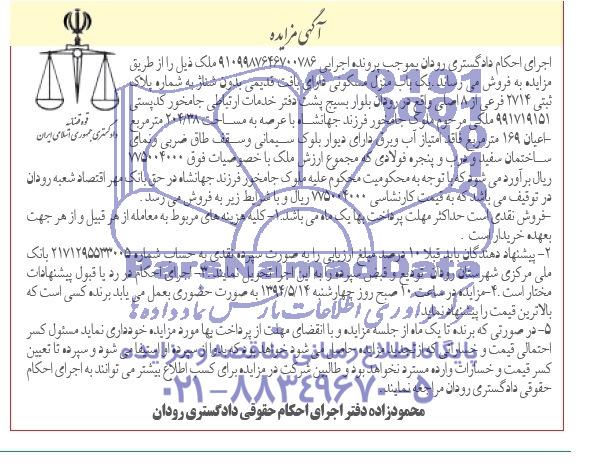 آگهی مزایده
قوه قضائیه
دادگستری جمهوری اسلامی ایران
اجرای احکام دادگستری رودان بموجب پرونده اجرایی ۹۱۰۹۹۸۷۶۴۶۷۰۰۷۸۶ ملک ذیل را از طریق
مزایده به فروش می رساند یک باب منزل مسکونی دارای بافت قدیمی بدون شناژ به شماره پلاک
ثبتی ۲۷۱۴ فرعی از ۸ اصلی واقع در رودان بلوار بسیج پشت دفتر خدمات ارتباطی جامخور کدپستی
۹۹۱۷۱۹۱۵۱ ملکی مرحوم ملوک جامخور فرزند جهانشاه با عرصه به مساحت ۲۰۴/۳۸ مترمربع
-اعیان ۱۶۹ مترمربع فاقد امتیاز آب وبرق دارای دیوار بلوک سیمانی وسقف طاق ضربی ونمای
ساختمان سفید و درب و پنجره فولادی که مجموع ارزش ملک با خصوصیات فوق ۷۷۵۰۰۴۰۰۰
ریال برآورد می شود که با توجه به محکومیت محکوم علیه ملوک جامخور فرزند جهانشاه در حق بانک مهر اقتصاد شعبه رودان
در توقیف می باشد که به قیمت کارشناسی ۷۷۵۰۰۴۰۰۰ ریال و با شرایط زیر به فروش می رسد.
-فروش نقدی است حداکثر مهلت پرداخت بها یک ماه می باشد.۱-کلیه هزینه های مربوط به معامله از هر قبیل و از هر جهت
بعهده خریدار است.
۲- پیشنهاد دهندگان باید قبلا ۱۰ درصد مبلغ ارزیابی را به صورت سپرده نقدی به حساب شماره ۲۱۷۱۲۹۵۵۳۳۰۰۵ بانک
ملی مرکزی شهرستان رودان تودیع و قبض سپرده را به این اجرا تحویل نمایند.۳- اجرای احکام در رد یا قبول پیشنهادات
مختار است.۴-مزایده در ساعت ۱۰ صبح روز چهارشنبه ۱۳۹۴/۵/۱۴ به صورت حضوری بعمل می یابد برنده کسی است که
بالاترین قیمت را پیشنهاد نماید.
۵- در صورتی که برنده تا یک ماه از جلسه مزایده و با انقضای مهلت از پرداخت بها مورد مزایده خودداری نماید مسئول کسر
احتمالی قیمت و خساراتی که از تجدید مزایده حاصل می شود خواهد بود که بدوا از سپرده او استیفا می شود و سپرده تا تعیین
کسر قیمت و خسارات وارده مسترد نخواهد بود و طالبین شرکت در مزایده برای کسب اطلاع بیشتر می توانند به اجرای احکام
حقوقی دادگستری رودان مراجعه نمایند.
محمودزاده دفتر اجرای احکام حقوقی دادگستری رودان
گردآوری اطلاعات پارس نماد داده ها
۰۲۱-۸۸۳۴۹۶۷۰-۵